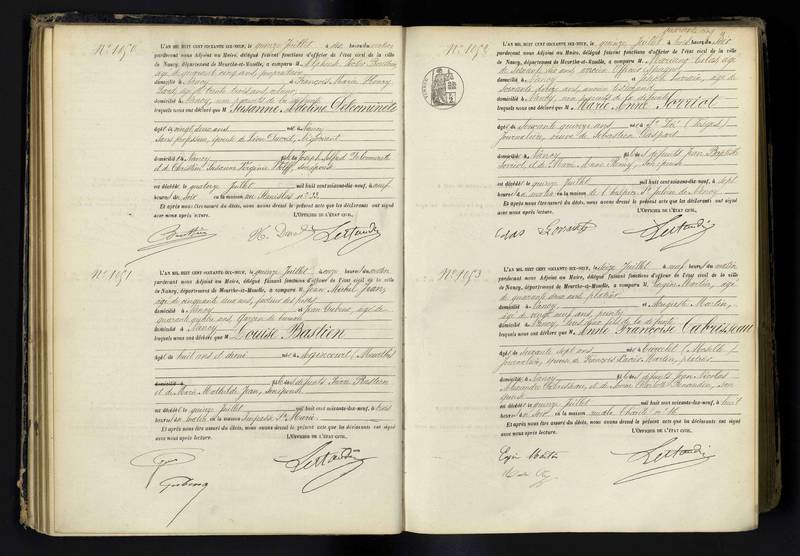 N° 1050
L'AN MIL HUIT CENT SOIXANTE-DIX-NEUF, le quinze Juillet à dix heures du matin
pardevant nous Adjoint au Maire, délégué faisant fonctions d'officier de l'état civil de la ville
de Nancy, département de Meurthe-et-Moselle, a comparu M. Alphonse
âgé de quarante cinq ans, propriétaire
domicilié à Nancy et François Marie Henry
âgé de trente trois ans
domicilié à Nancy, non parents de la défunte
lesquels nous ont déclaré que M Susanne Adeline Delcominete
âgée de vingt deux ans née à Nancy
sans profession, épouse de Léon David, Négociant
domiciliée à Nancy fille de Joseph Alfred Delcominete
et de Christine Susanne Virginie Wolff,
est décédée le quatorze Juillet mil huit cent soixante-dix-neuf, à neuf
heures du soir en la maison rue Stanislas n° 32
Et après nous être assuré du décès, nous avons dressé le présent acte que les déclarants ont signé
avec nous après lecture. L'OFFICIER DE L'ÉTAT CIVIL,
N° 1051
L'AN MIL HUIT CENT SOIXANTE-DIX-NEUF, le quinze Juillet à onze heures du matin
pardevant nous Adjoint au Maire, délégué faisant fonctions d'officier de l'état civil de la
ville de Nancy, département de Meurthe-et-Moselle, a comparu M. Jean Michel Jean,
âgé de cinquante deux ans, facteur des postes
domicilié à Nancy et Jean âgé de
quarante quatre ans, garçon de bureau
domicilié à Nancy
lesquels nous ont déclaré que M Louise Bastien
âgée de huit ans et demi née à Agincourt (Meurthe)
domiciliée à fille des défunts Jean Bastien
et de Marie Mathilde Jean, son épouse
est décédée le quinze Juillet mil huit cent soixante-dix-neuf, à trois
heures du matin en la maison Impasse Ste Marie
Et après nous être assuré du décès, nous avons dressé le présent acte que les déclarants ont signé
avec nous après lecture. L'OFFICIER DE L'ÉTAT CIVIL,
quarante cinq
N° 1052
L'AN MIL HUIT CENT SOIXANTE-DIX-NEUF, le quinze Juillet à trois heures du soir
pardevant nous Adjoint au Maire, délégué faisant fonctions d'officier de l'état civil de la ville
de Nancy, département de Meurthe-et-Moselle, a comparu M. Colas,
âgé de soixante dix ans, ancien
domicilié à Nancy et Joseph Lorrain, âgé de
soixante douze ans, ancien
domicilié à Nancy, non parents de la défunte
lesquels nous ont déclaré que M Marie Anne Sorriot
âgée de soixante quinze ans née à St Dié (Vosges)
journalière, veuve de Sébastien Gaspart
domiciliée à Nancy fille des défunts Jean Baptiste
Sorriot et de Marie Anne Henry, son épouse
est décédée le quinze Juillet mil huit cent soixante-dix-neuf, à sept
heures du matin en la maison de l'hospice St Julien de Nancy
Et après nous être assuré du décès, nous avons dressé le présent acte que les déclarants ont signé
avec nous après lecture. L'OFFICIER DE L'ÉTAT CIVIL,
N° 1053
L'AN MIL HUIT CENT SOIXANTE-DIX-NEUF, le seize Juillet à neuf heures du matin
pardevant nous Adjoint au Maire, délégué faisant fonctions d'officier de l'état civil de la ville
de Nancy, département de Meurthe-et-Moselle, a comparu M. Eugène Martin, âgé
de quarante deux ans, plâtrier
domicilié à Nancy et Auguste Martin,
âgé de vingt neuf ans, peintre
domicilié à Nancy, tous deux fils de la défunte
lesquels nous ont déclaré que M Anne Françoise Cabrisseau
âgée de soixante sept ans née à (Moselle)
journalière, épouse de François Louis Martin, plâtrier
domiciliée à Nancy fille des défunts Jean Nicolas
Alexandre Cabrisseau, et de son
épouse
est décédée le quinze Juillet mil huit cent soixante-dix-neuf, à huit
heures du soir en la maison rue de la Charité n° 16
Et après nous être assuré du décès, nous avons dressé le présent acte que les déclarants ont signé
avec nous après lecture. L'OFFICIER DE L'ÉTAT CIVIL,